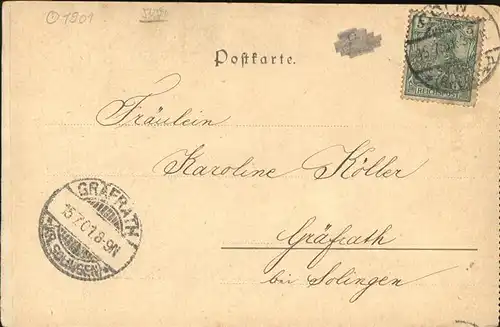 1901
Postkarte.
REICHSPOST
Fräulein
Karoline Köller
Gräfrath
bei Solingen
GRÄFRATH
15.7.01.8-9N
(KR. SOLINGEN)